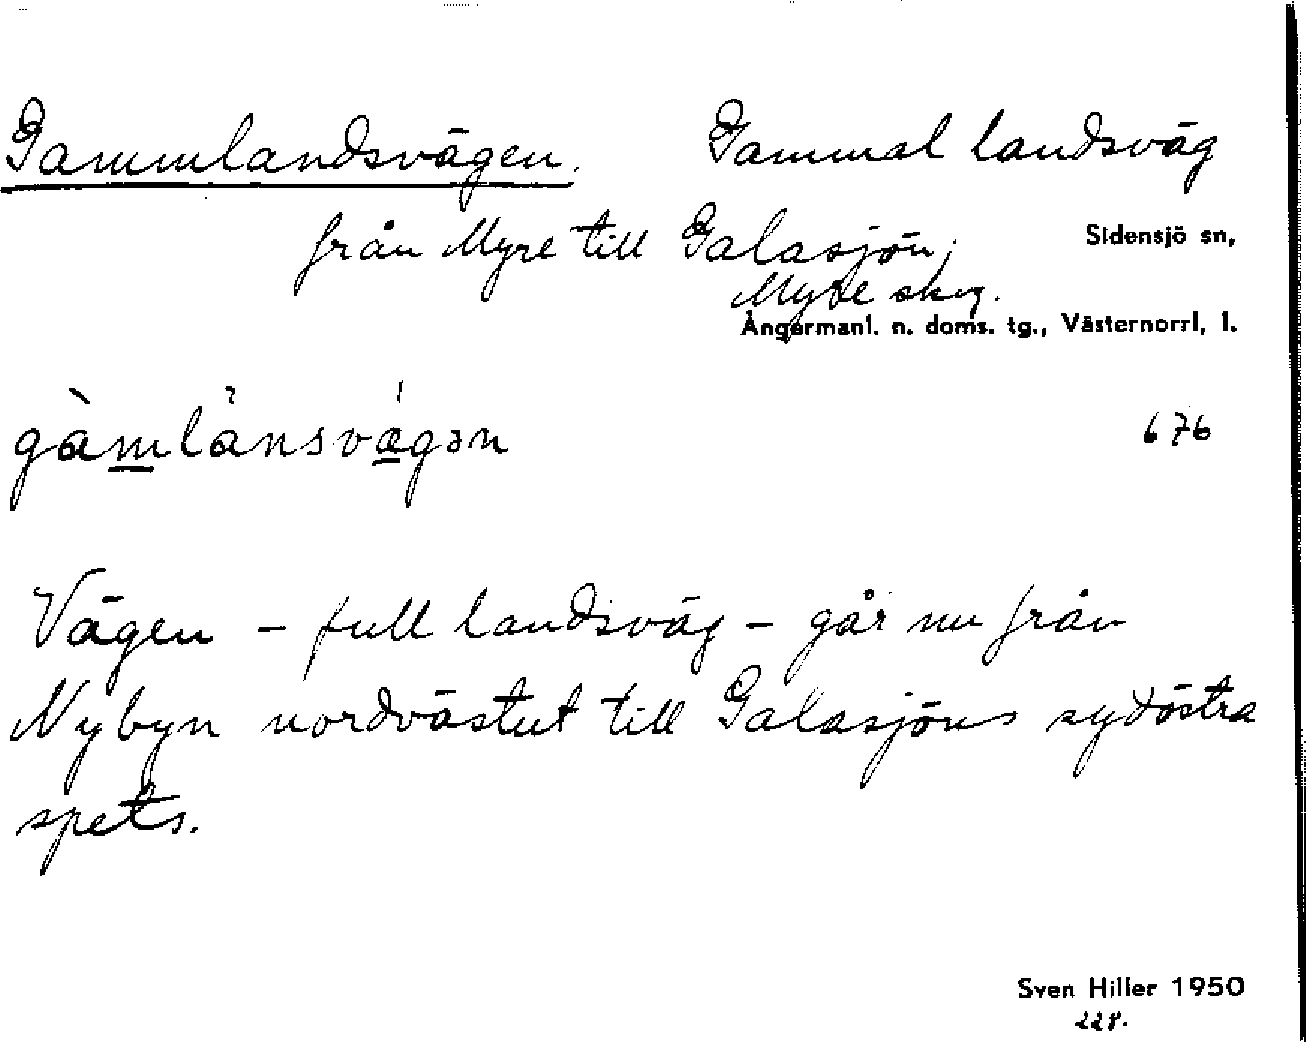 Gammlandsvägen. Gammal landsväg
från Myre till Galasjön,
Sidensjö sn,
Myre skog.
Ångermanl. n. doms. tg., Västernorrl. l.
gàm̲lànsvǽ̲gən
676
Vägen – full landsväg – går nu från
Nybyn nordvästut till Galasjöns sydöstra
spets.
Sven Hiller 1950
228.